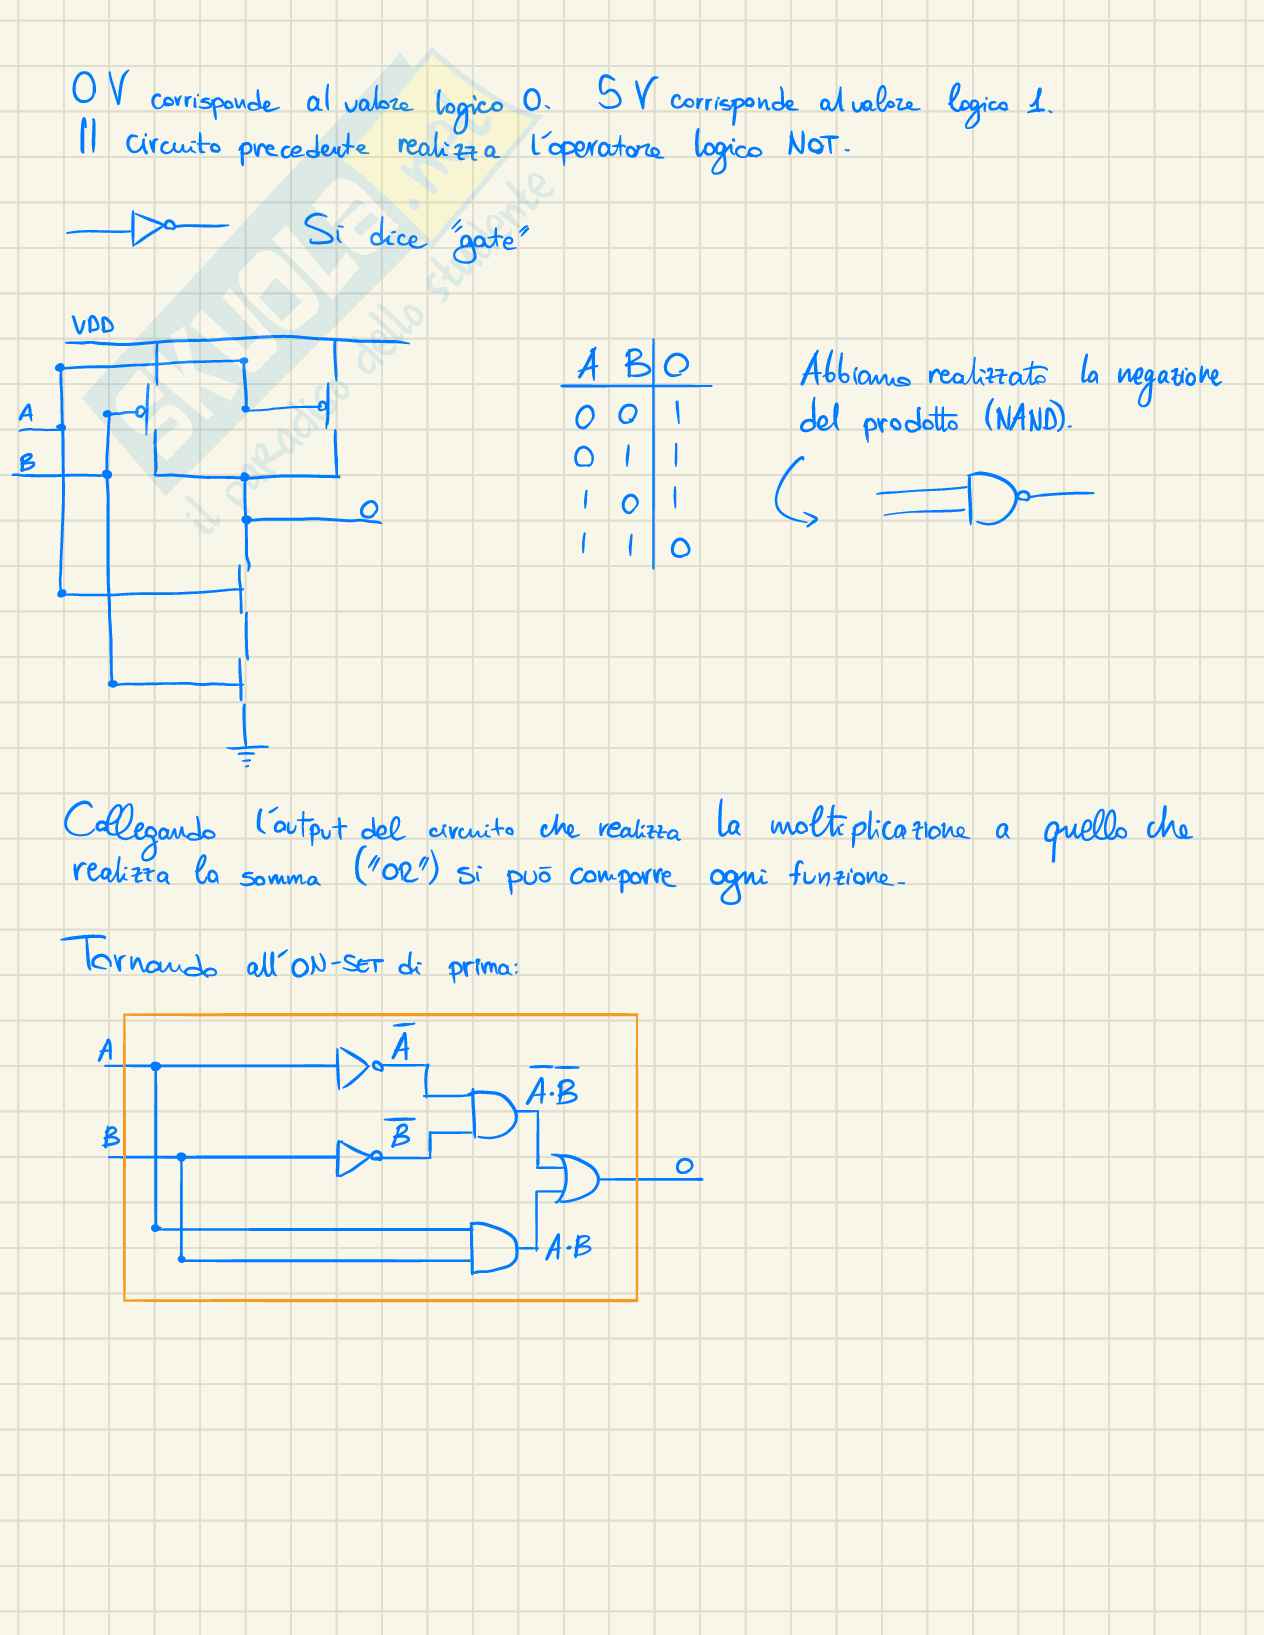 0V corrisponde al valore logico 0. 5V corrisponde al valore logico 1.
Il circuito precedente realizza l'operatore logico NOT.
Si dice "gate"
SKUOLA.net
il paradiso dello studente
VDD
A
B
O
A B O
0 0 1
0 1 1
1 0 1
1 1 0
Abbiamo realizzato la negazione
del prodotto (NAND).
Collegando l'output del circuito che realizza la moltiplicazione a quello che
realizza la somma ("OR") si può comporre ogni funzione.
Tornando all'ON-SET di prima:
A
A̅
A̅·B̅
B
B̅
O
A·B